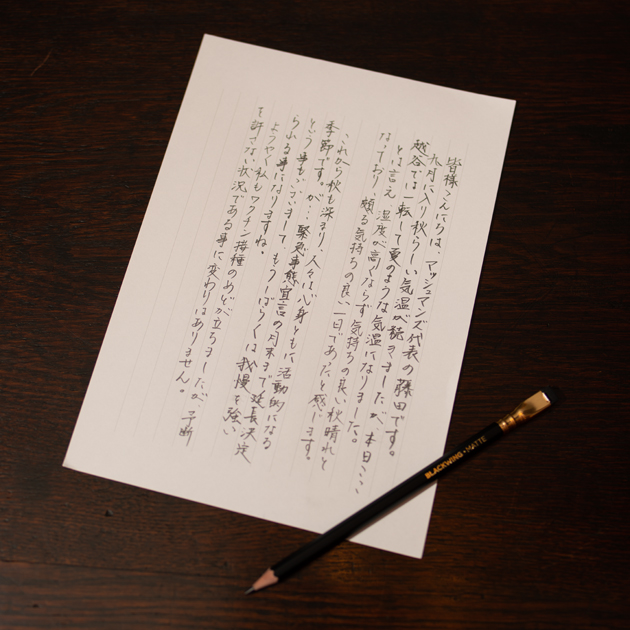 皆様こんにちは、マッシュマンズ代表の藤田です。
九月に入り秋らしい気温が続きましたが、本日ここ
越谷では一転して夏のような気温になりました。
とは言え、湿度が高くならず気持ちの良い秋晴れと
なっており、頗る気持ちの良い一日であったと感じます。
これから秋も深まり、人々は心身ともに活動的になる
季節です。が…緊急事態宣言の月末まで延長決定
という事もございまして、もうしばらくは我慢を強い
られる事になりますね。
ようやく私もワクチン接種のめどが立ちましたが、予断
を許さない状況である事に変わりはありません。
BLACKWING MATTE